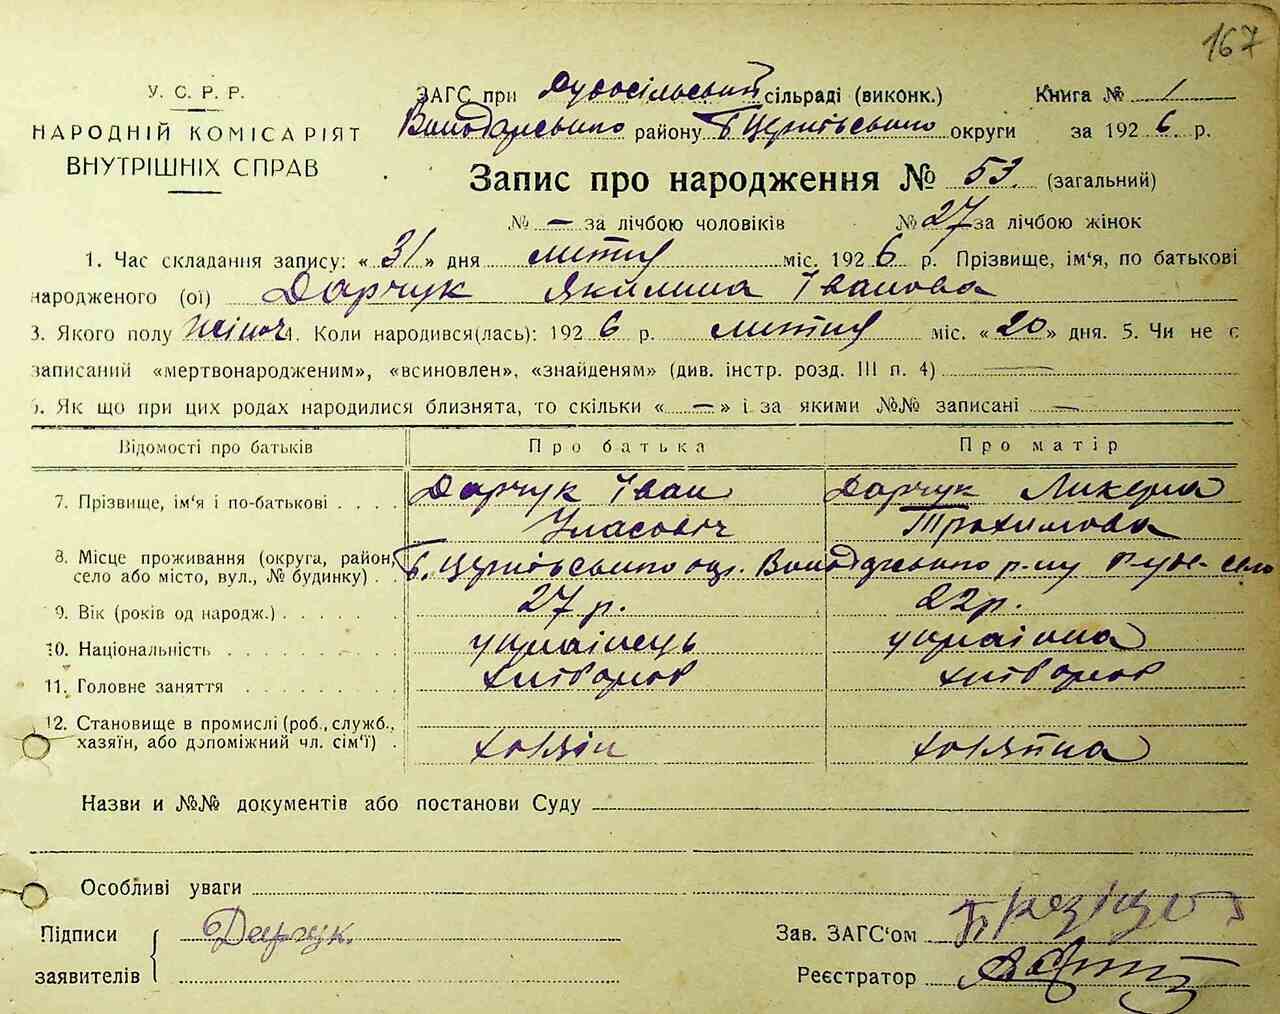 167
У. С. Р. Р.
НАРОДНІЙ КОМІСАРІЯТ
ВНУТРІШНІХ СПРАВ
ЗАГС при сільраді (виконк.) Книга № 1
Володарського району Б Церківського округи за 1926 р.
Запис про народження № 53. (загальний)
№ — за лічбою чоловіків № 27 за лічбою жінок
1. Час складання запису: «31» дня липня міс. 1926 р. Прізвище, ім'я, по батькові
народженого (ої) Дарчук Якилина Іванова
3. Якого полу жіноч 4. Коли народився(лась): 1926 р. липня міс. «20» дня. 5. Чи не є
записаний «мертвонародженим», «всиновлен», «знайденям» (див. інстр. розд. III п. 4) —
6. Як що при цих родах народилися близнята, то скільки «—» і за якими №№ записані —
Відомості про батьків Про батька Про матір
7. Прізвище, ім'я і по-батькові . . . . Дарчук Іван Дарчук Ликера
Уласович Трохимова
8. Місце проживання (округа, район,
село або місто, вул., № будинку) . Б. Церківського окр. Володарського р-ну Рude-село
9. Вік (років од народж.) . . . . . . 27 р. 22 р.
10. Національність . . . . . . . . . українець українка
11. Головне заняття . . . . . . . . хлібороб хлібороб
12. Становище в промислі (роб., служб.,
хазяїн, або допоміжний чл. сім'ї) . хазяїн хазяйка
Назви и №№ документів або постанови Суду
Особливі уваги
Підписи
заявителів
Дарчук.
Зав. ЗАГС'ом
Реєстратор